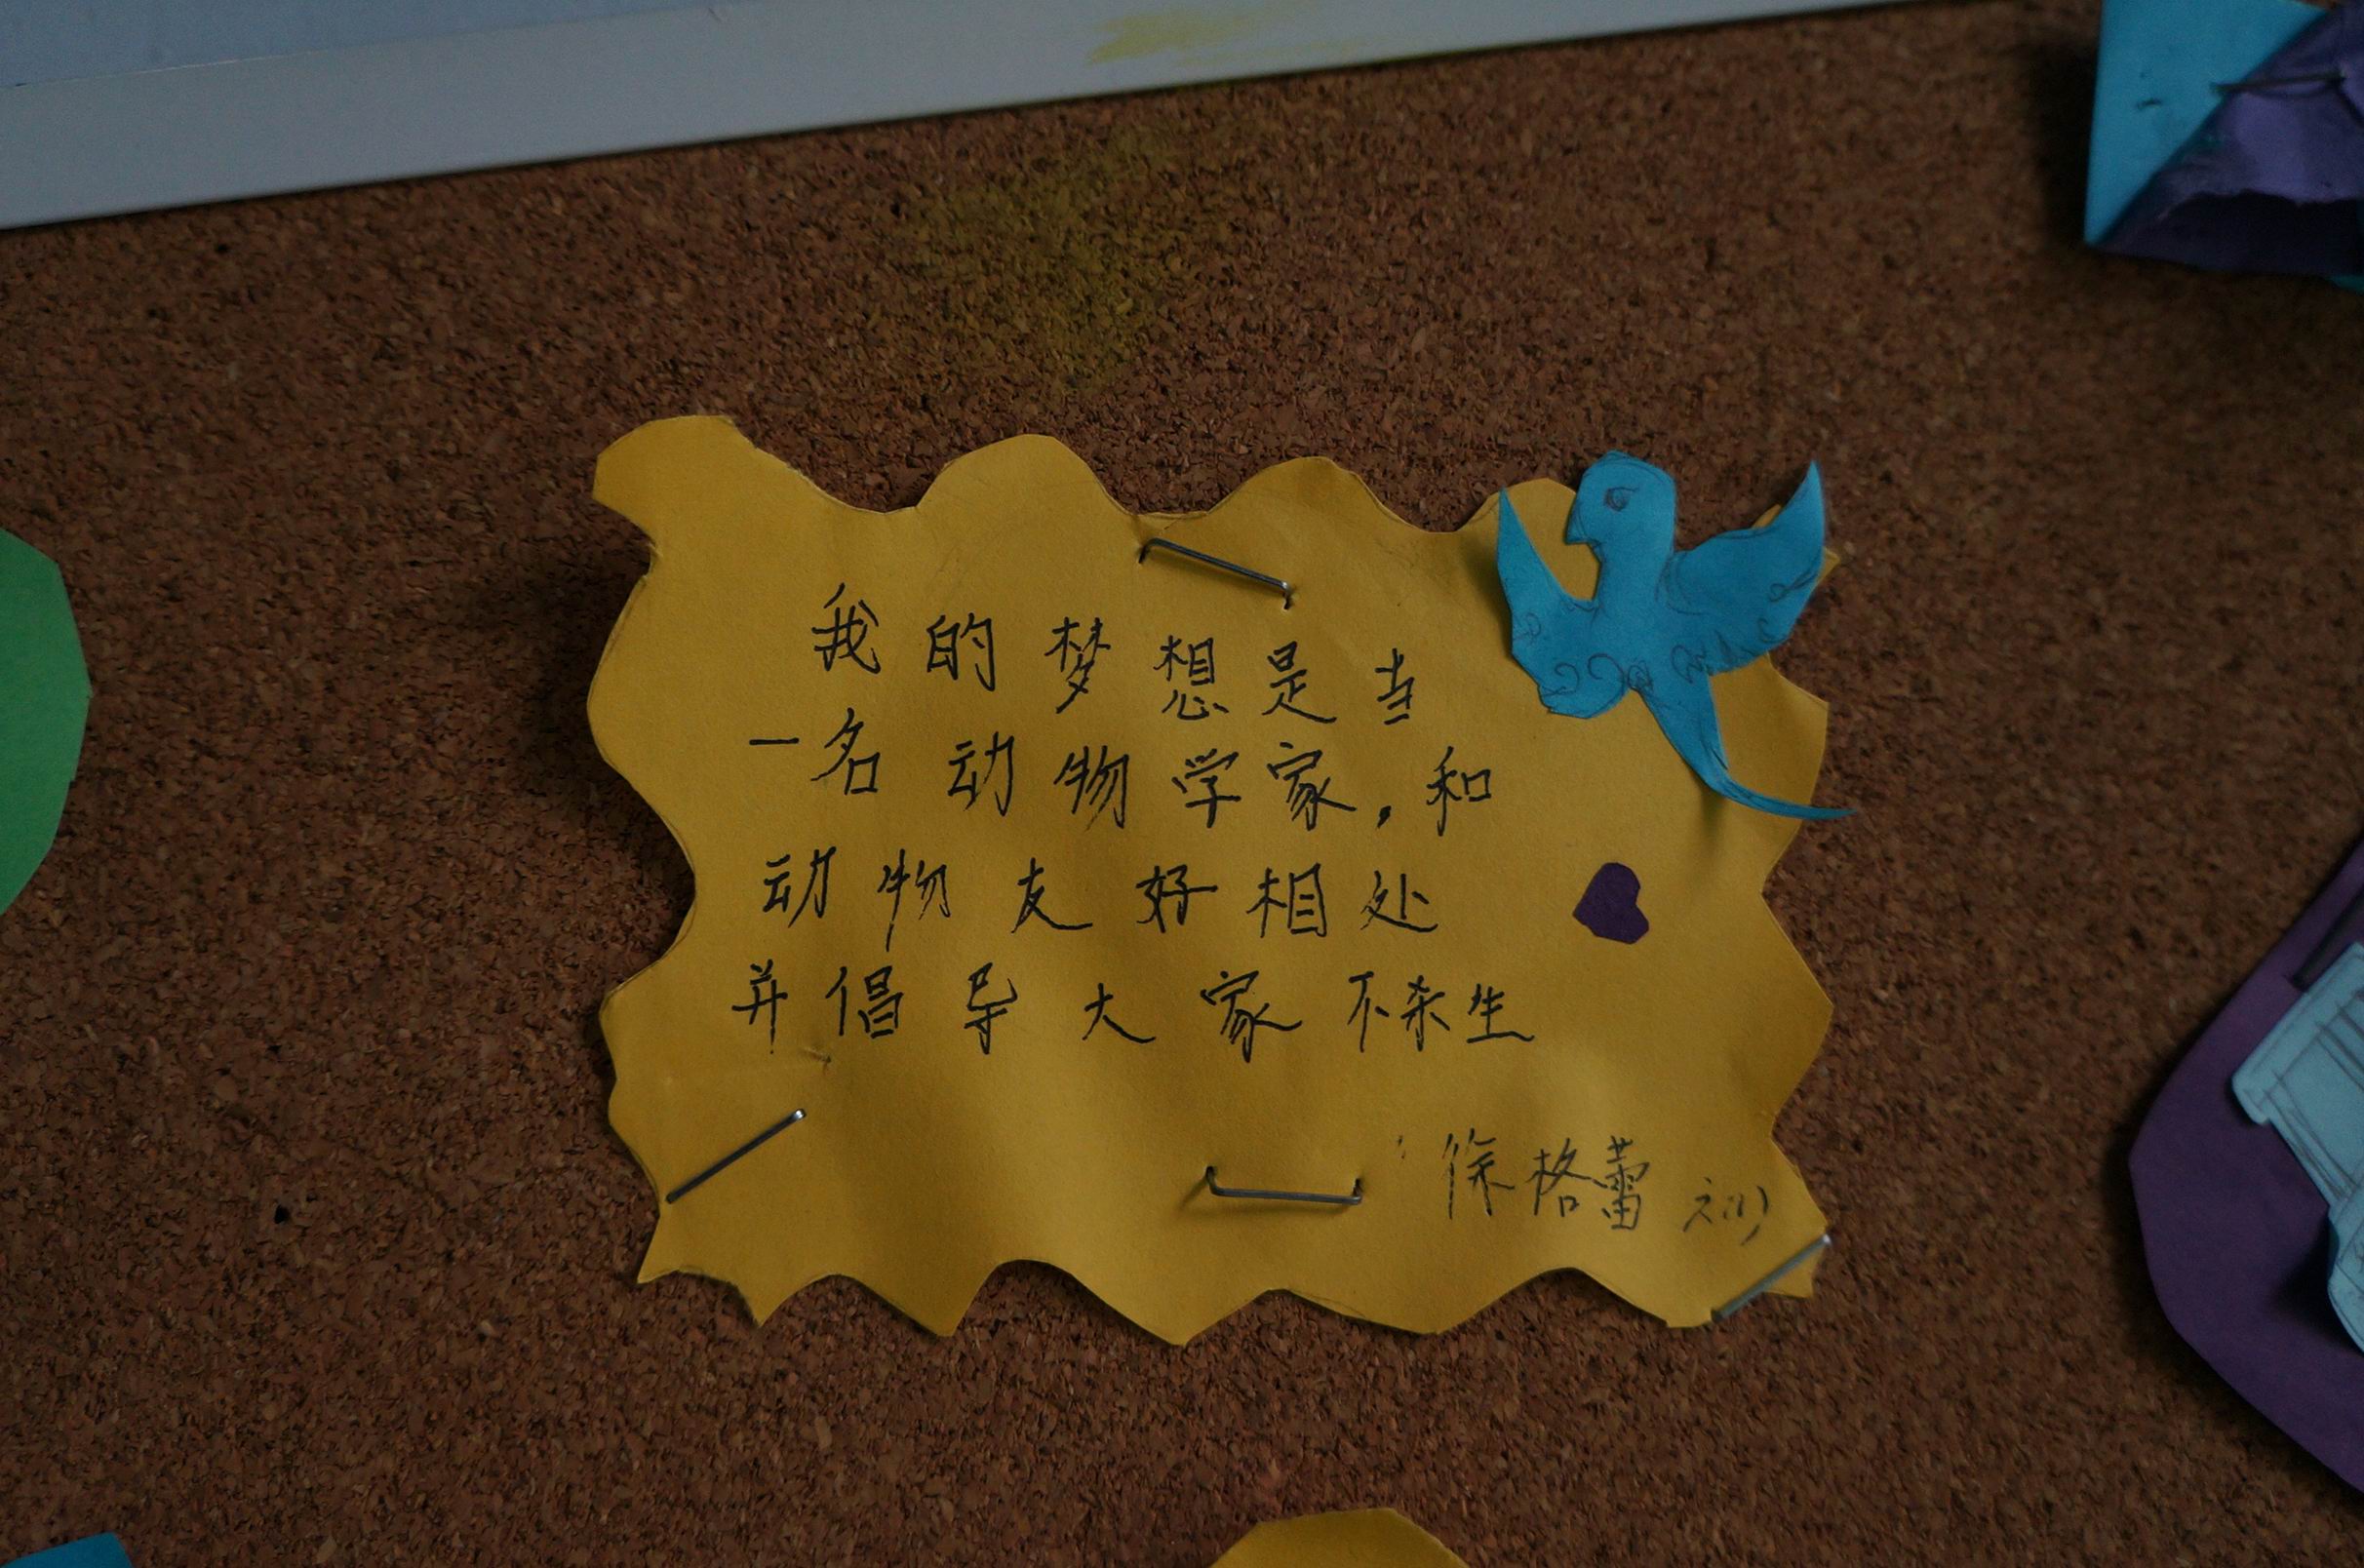 我的梦想是当
一名动物学家,和
动物友好相处
并倡导大家不杀生
徐格蕾